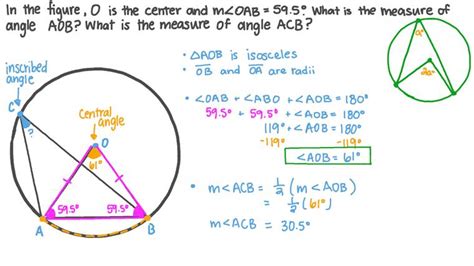 In the figure, O is the center and m∠OAB = 59.5°. What is the measure of
angle AOB? What is the measure of angle ACB?
inscribed
angle
C
?
Central
angle
O
61°
59.5°
59.5°
A
B
• △AOB is isosceles
• OB and OA are radii
• ∠OAB + ∠ABO + ∠AOB = 180°
59.5° + 59.5° + ∠AOB = 180°
119° + ∠AOB = 180°
-119° -119°
∠AOB = 61°
• m∠ACB = 1/2 (m∠AOB)
= 1/2 (61°)
m∠ACB = 30.5°
a°
2a°